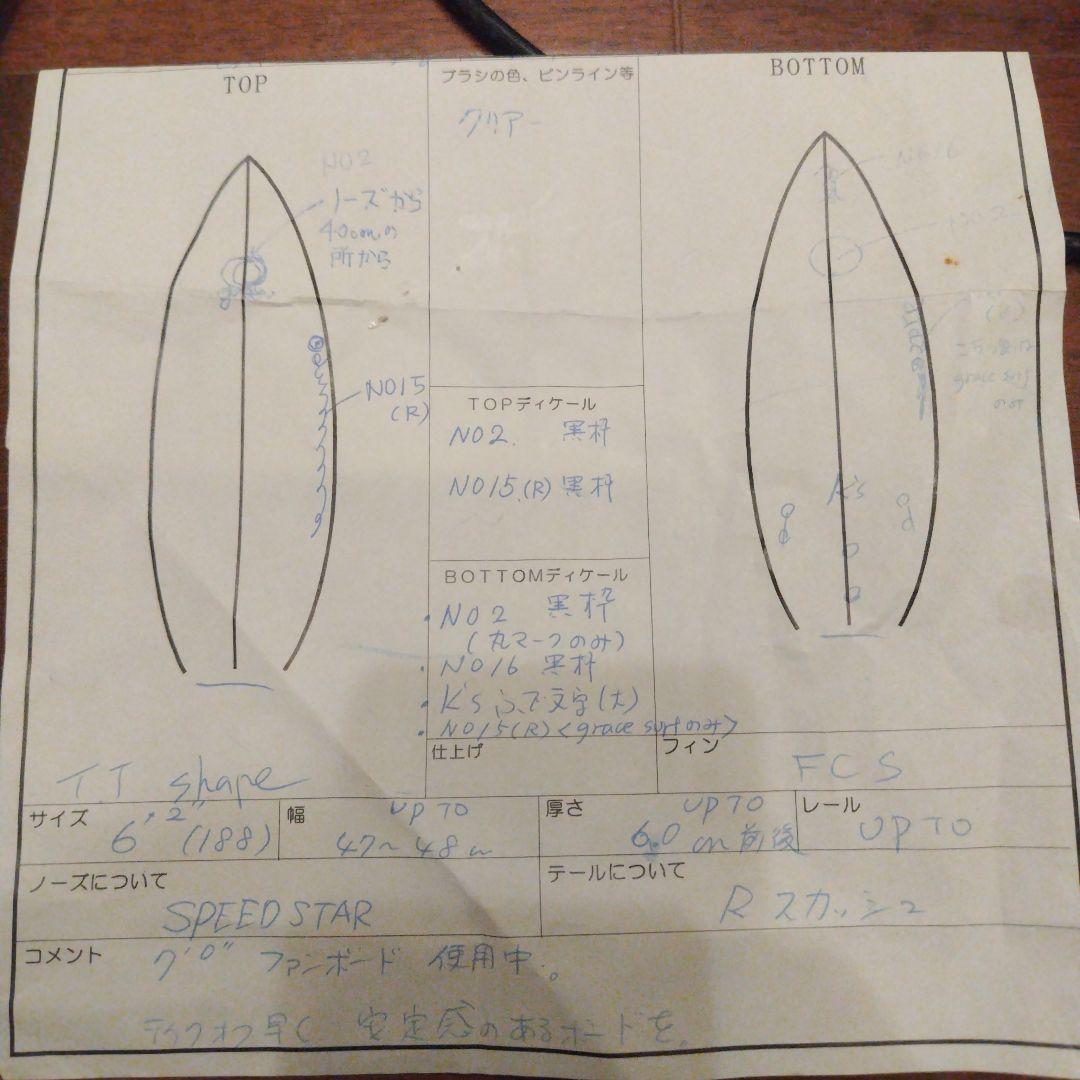 TOP
NO2
ノーズから
40cmの
所から
NO15
(R)
ブラシの色、ピンライン等
クリアー
TOPディケール
NO2. 黒枠
NO15.(R) 黒枠
BOTTOMディケール
・NO2 黒枠
(丸マークのみ)
・NO16 黒枠
・K's ふで文字(大)
・NO15(R)<grace surfのみ>
BOTTOM
NO16
NO2
(R)
grace surf
のみ
K's
仕上げ
フィン
FCS
T.T shape
サイズ
6'2" (188)
幅
UP TO
47〜48cm
厚さ
UP TO
6.0cm前後
レール
UP TO
ノーズについて
SPEED STAR
テールについて
R スカッシュ
コメント
7'0" ファンボード 使用中。
テイクオフ早く 安定感のあるボードを。